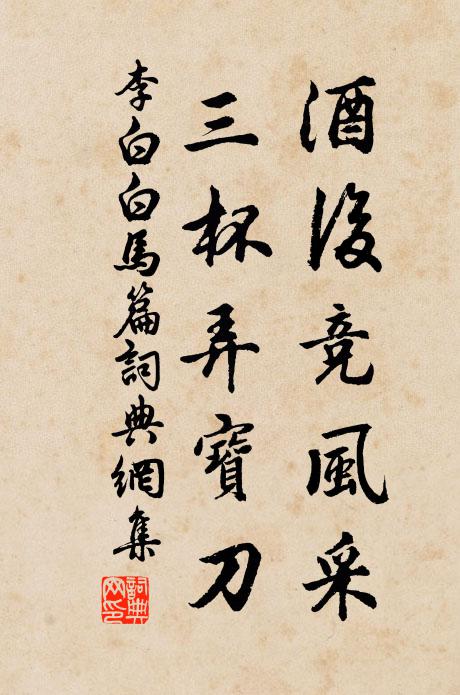 酒後竞風采
三杯弄寶刀
李白白馬篇詞典網集
詞典網印